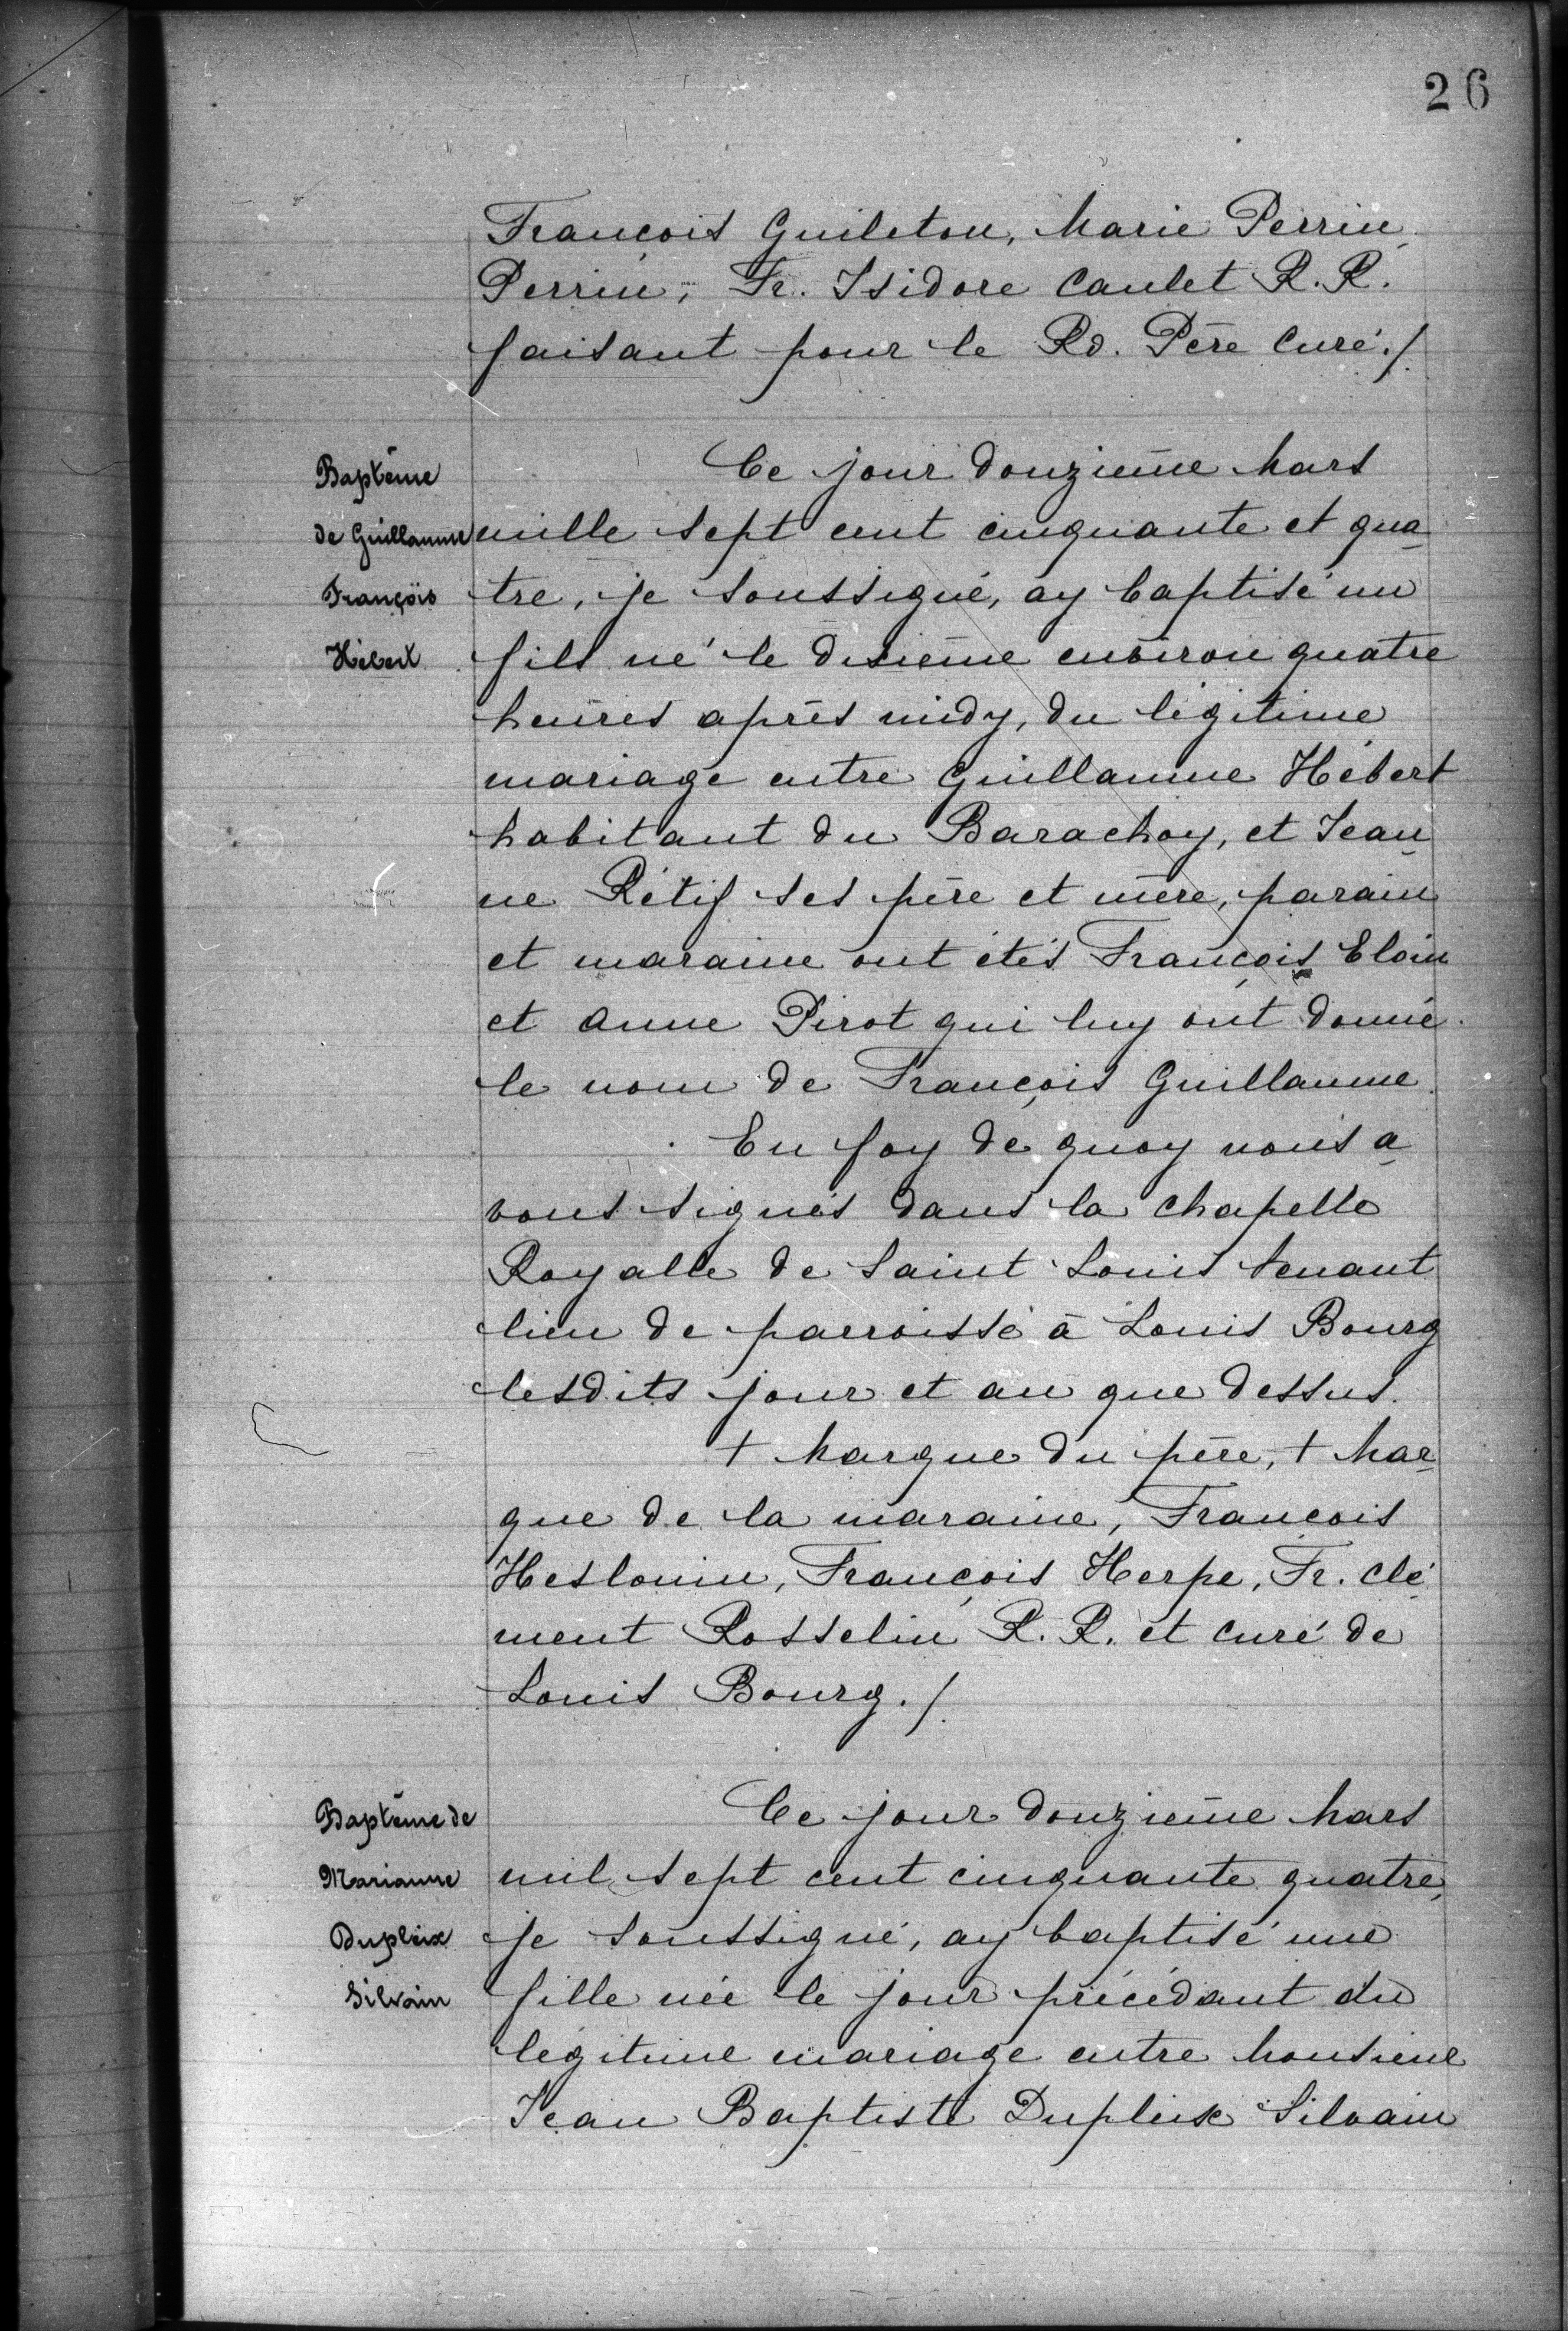 26
François Guileton, Marie Perrin
Perrin, Fr. Isidore Caulet R. R.
faisant pour le Rd. Père Curé./.
Baptême
de Guillaume
François
Hébert
Ce jour douzième Mars
mille sept cent cinquante et qua
tre, je soussigné, ay baptisé un
fils né le dixième environ quatre
heures après midy, du légitime
mariage entre Guillaume Hébert
habitant du Barachoy, et Jean
ne Rétif ses père et mère, parain
et maraine ont étés François Eloin
et Anne Pirot qui luy ont donné
le nom de François Guillaume.
En foy de quoy nous a
vons signés dans la Chapelle
Royalle de Saint Louis tenant
lieu de parroisse à Louis Bourg
lesdits jour et an que dessus.
+ Marque du père, + Mar
que de la maraine, François
Heslouin, François Herpe, Fr. Clé
ment Rosselin R. R. et curé de
Louis Bourg./.
Baptême de
Marianne
Dupleix
Silvain
Ce jour douzième Mars
mil sept cent cinquante quatre,
je soussigné, ay baptisé une
fille née le jour précédant du
légitime mariage entre Monsieur
Jean Baptiste Dupleix Silvain